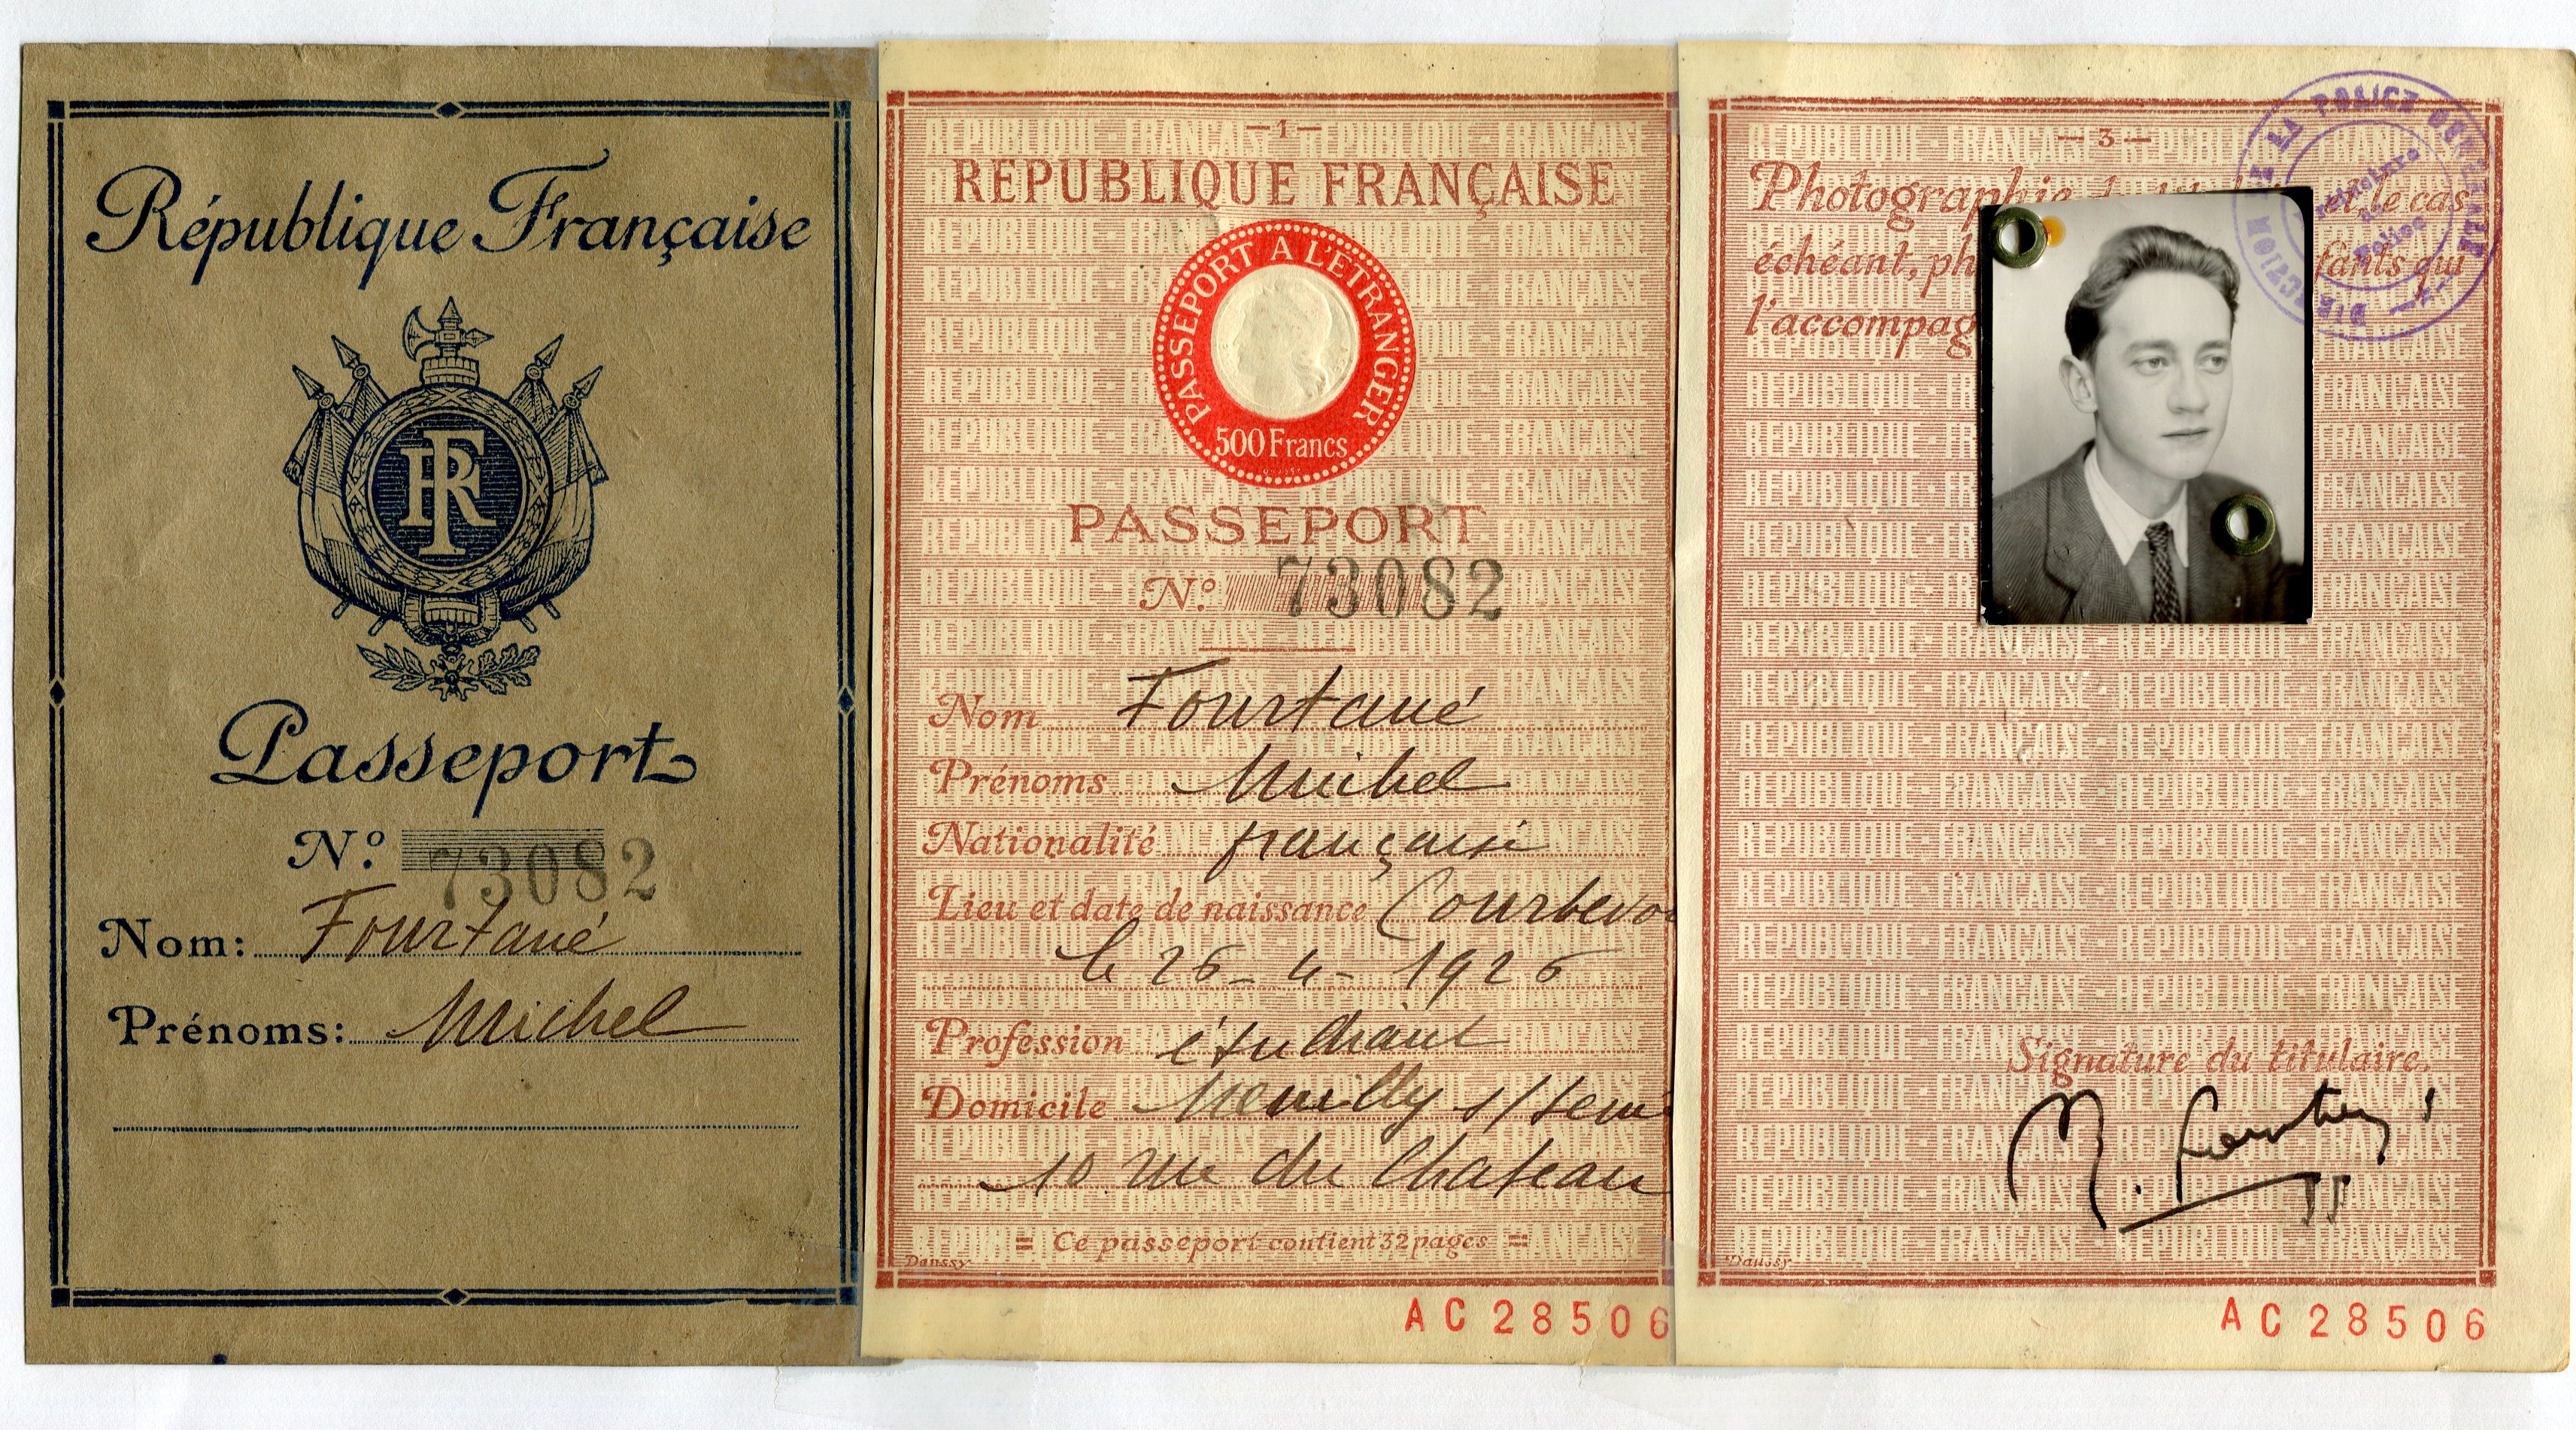 République Française
RF
Passeport
Nº 73082
Nom: Fourtané
Prénoms: Michel
— 1 —
REPUBLIQUE FRANÇAISE
PASSEPORT A L'ETRANGER
500 Francs
PASSEPORT
Nº 73082
Nom Fourtané
Prénoms Michel
Nationalité française
Lieu et date de naissance Courbevoi
le 26-4-1926
Profession étudiant
Domicile Neuilly s/Seine
10 rue du Chateau
= Ce passeport contient 32 pages =
Daussy
AC28506
— 3 —
Photographie et le cas
échéant, ph fants qui
l'accompag
DIRECTION DE LA POLICE GENERALE
Préfecture
de
Police
Signature du titulaire.
Daussy
AC28506